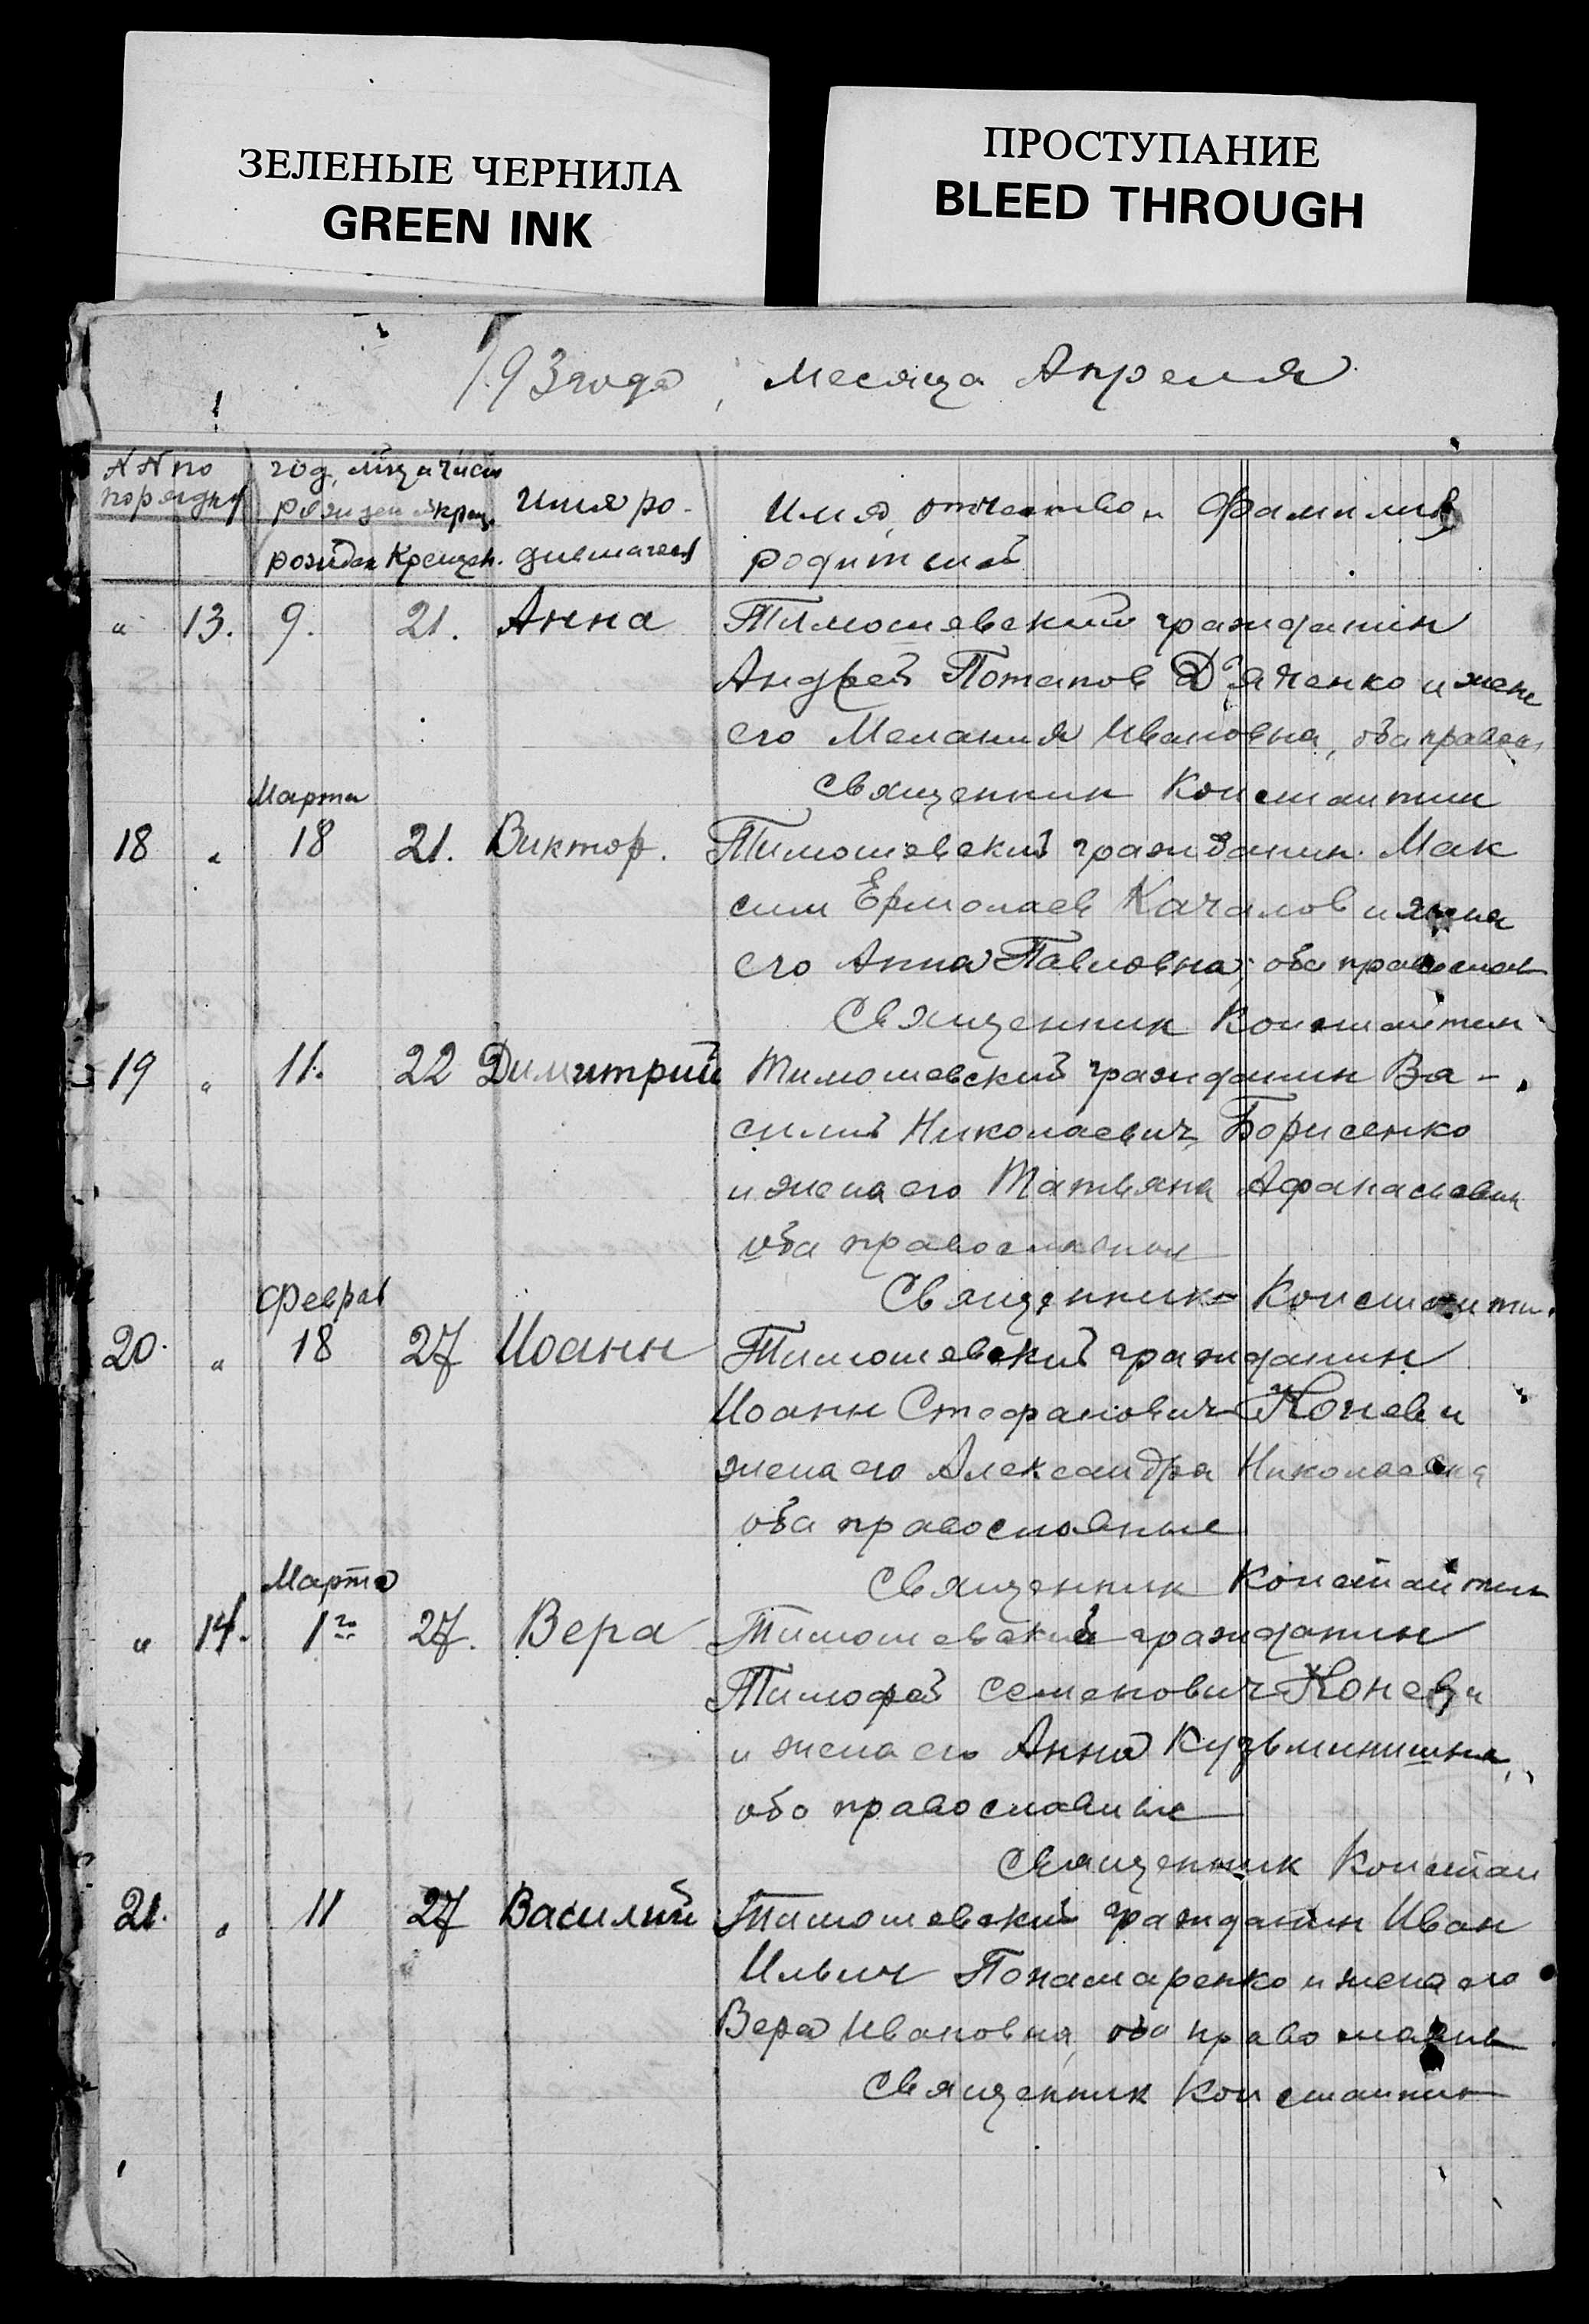 ЗЕЛЕНЫЕ ЧЕРНИЛА
GREEN INK
ПРОСТУПАНИЕ
BLEED THROUGH
193 года, месяца Апреля
№№ по порядку
год, м-ца и число рожден и крещ.
рожден Крещен.
Имя родившагося
Имя, отчество и Фамилия
родителей
" 13. 9. 21. Анна Тимошевский гражданин
Андрей Потапов Дъяченко и жена
его Мелания Ивановна, оба правосл
Священник Константин
Марта
18 " 18 21. Виктор. Тимошевский гражданин Мак
сим Ермолаев Качалов и жена
его Анна Павловна, оба православ
Священник Константин
19 " 11. 22 Димитрий Тимошевский гражданин Ва-
силий Николаевич Борисенко
и жена его Татьяна Афанасьевна
оба православные
Священник Константи
Феврал
20. " 18 27 Иоанн Тимошевский гражданин
Иоанн Стефанович Конев и
жена его Александра Николаевна
оба православные
Священник Константин
Марта
" 14. 1го 27. Вера Тимошевский гражданин
Тимофей Семенович Конев и
и жена его Анна Кузьминишна,
оба православные
Священник Констан
21. " 11 27 Василий Тимошевский гражданин Иван
Ильич Понамаренко и жена его
Вера Ивановна, оба православные
Священник Константин